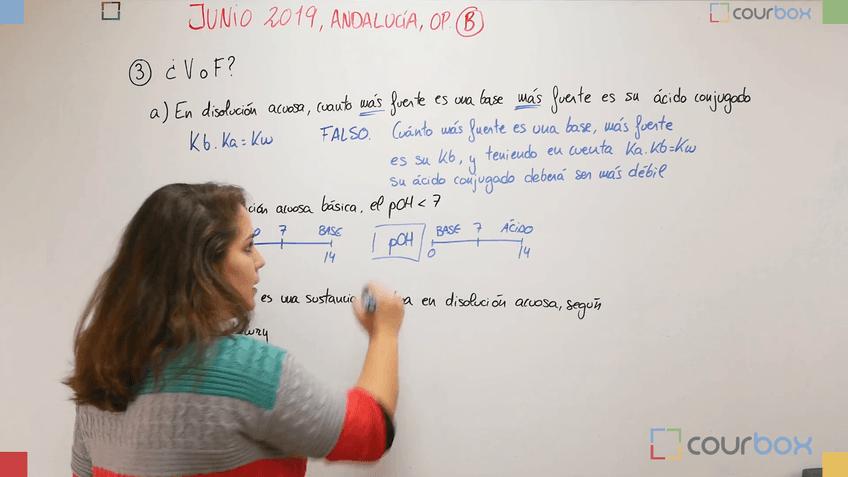 JUNIO 2019, ANDALUCÍA, OP. B
courbox
3 ¿V o F?
a) En disolución acuosa, cuanto más fuente es una base más fuente es su ácido conjugado
Kb · Ka = Kw FALSO. Cuánto más fuente es una base, más fuente
es su Kb, y teniendo en cuenta Ka.Kb=Kw
su ácido conjugado deberá ser más débil
acuosa básica, el pOH < 7
7 BASE
14
pOH
BASE 7 ÁCIDO
0 14
es una en disolución acuosa, según
courbox